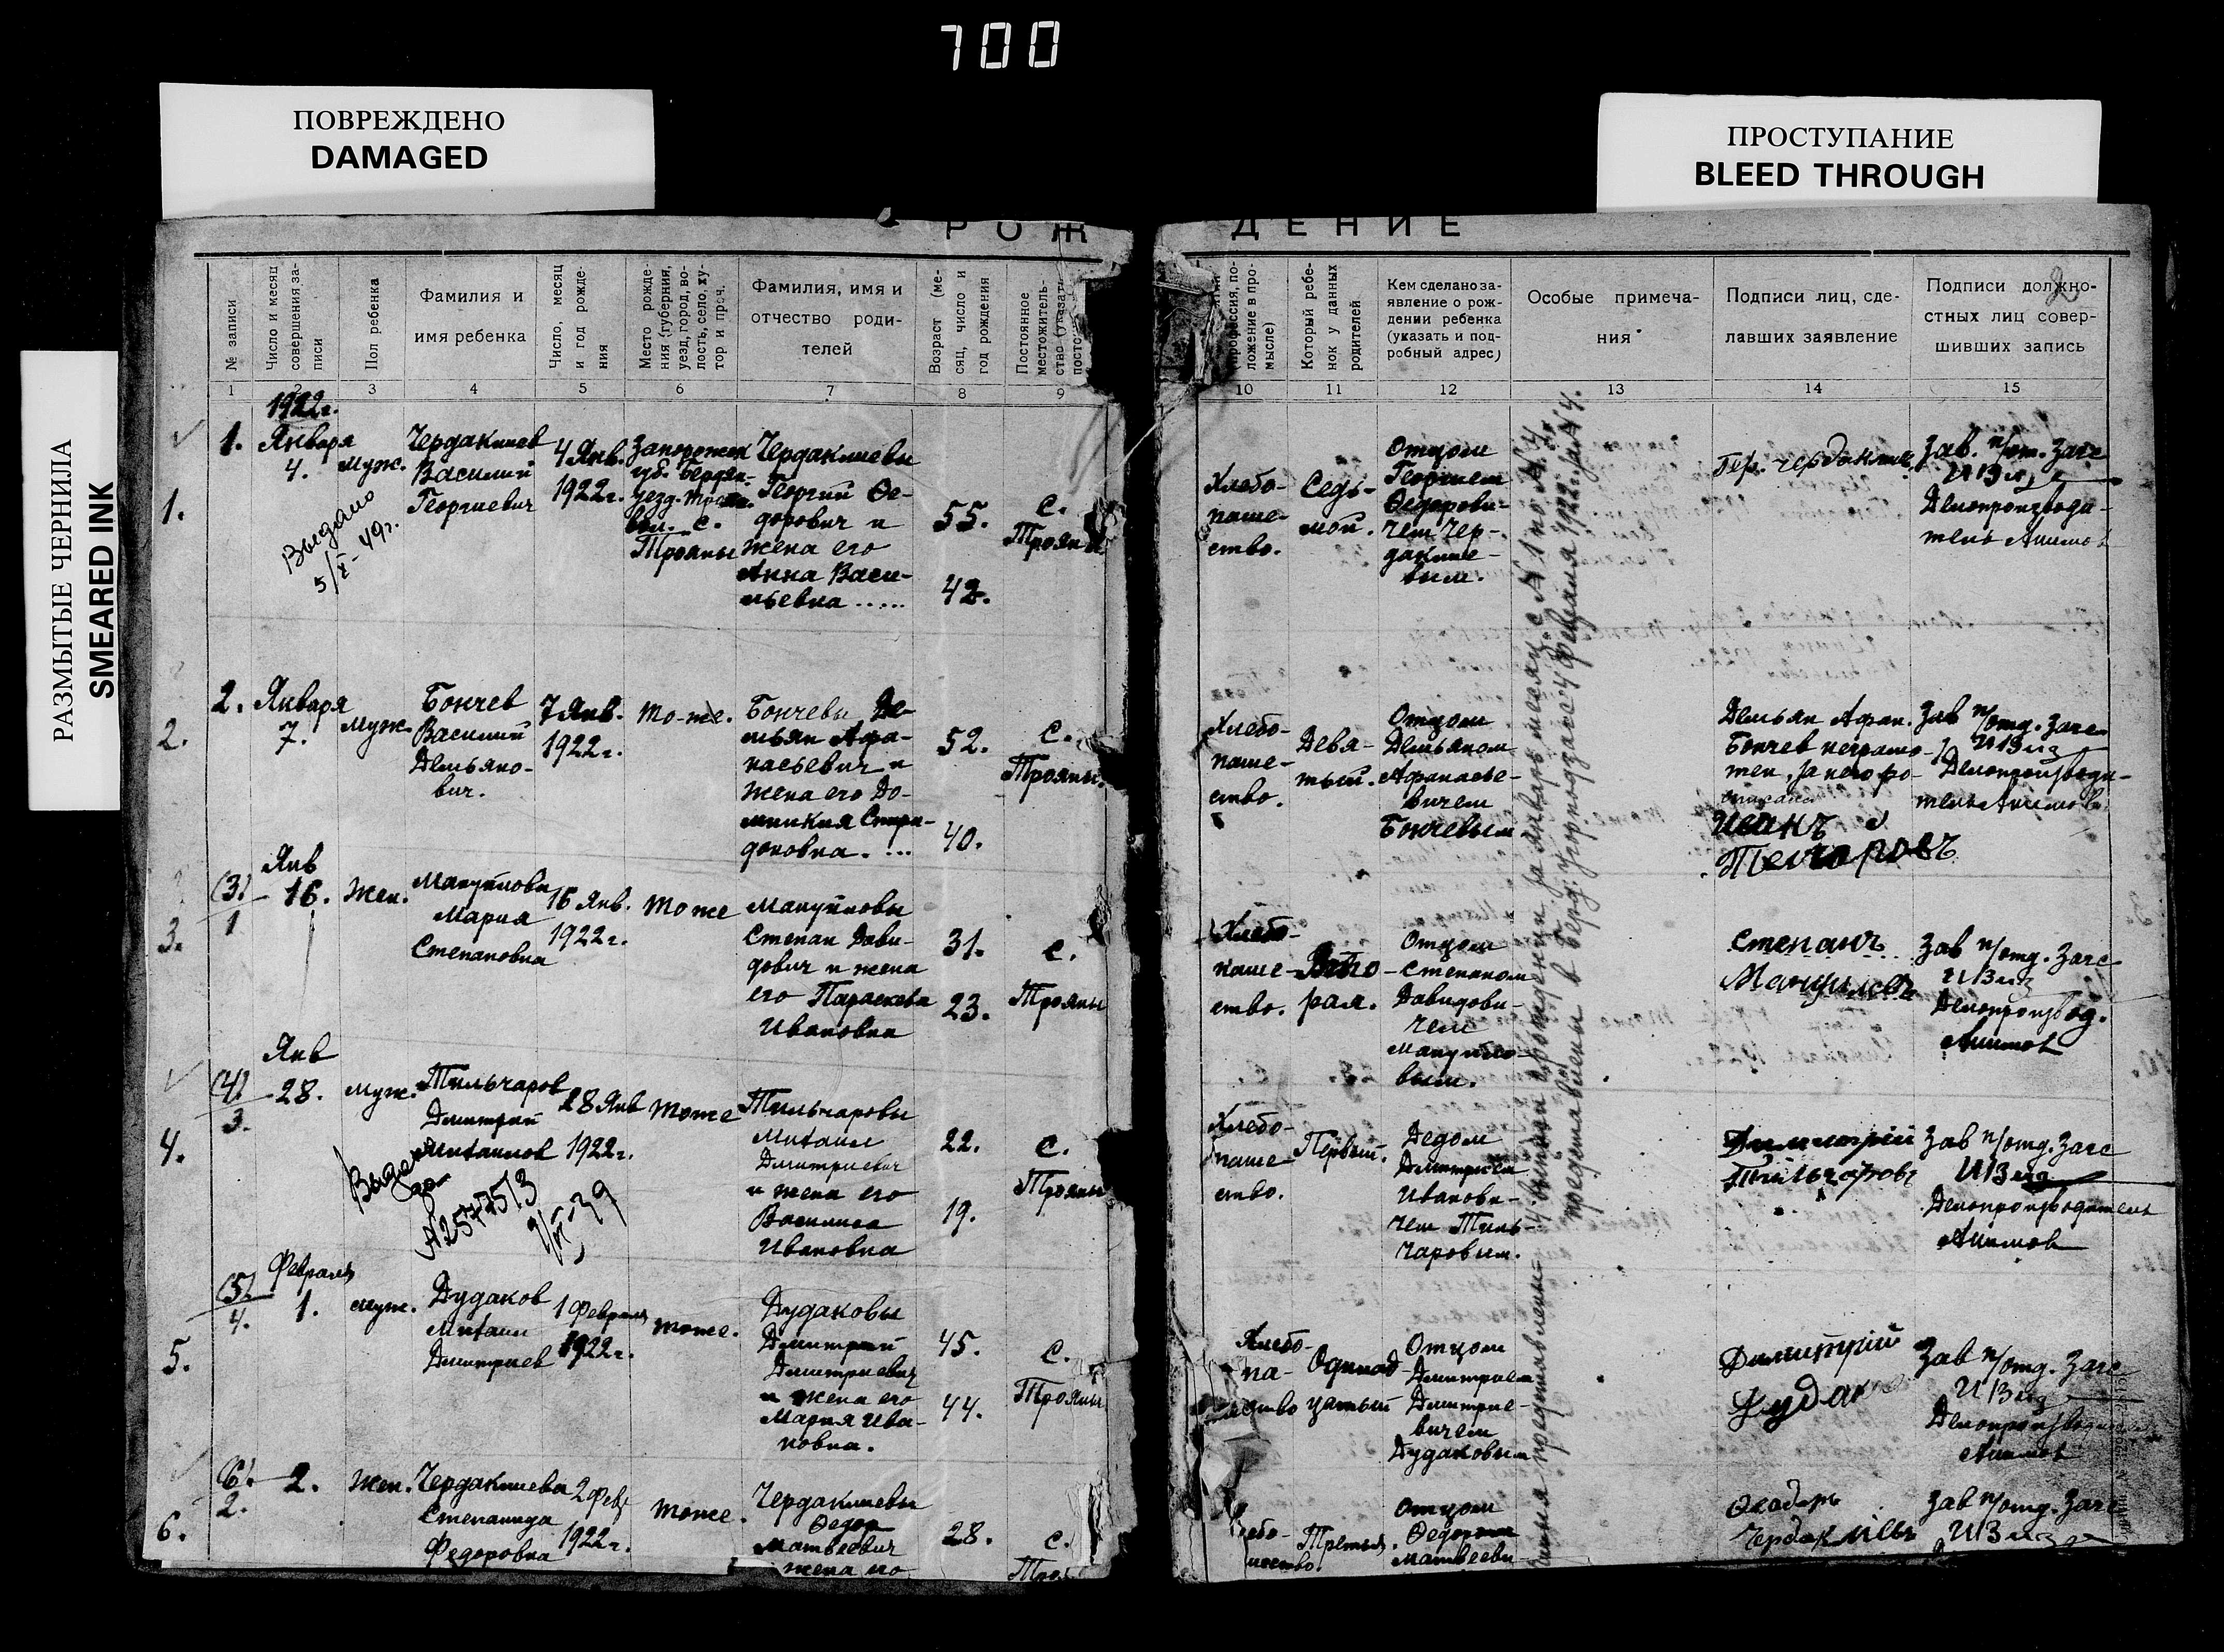 700
ПОВРЕЖДЕНО
DAMAGED
ПРОСТУПАНИЕ
BLEED THROUGH
РАЗМЫТЫЕ ЧЕРНИЛА
SMEARED INK
РОЖДЕНИЕ
№ записи
Число и месяц
совершения за-
писи
Пол ребенка
Фамилия и
имя ребенка
Число, месяц
и год рожде-
ния
Место рожде-
ния (губерния,
уезд, город, во-
лость, село, ху-
тор и проч.
Фамилия, имя и
отчество роди-
телей
Возраст (ме-
сяц, число и
год рождения
Постоянное
местожитель-
ство (указать
положение в про-
мысле)
Который ребе-
нок у данных
родителей
Кем сделано за-
явление о рож-
дении ребенка
(указать и под-
робный адрес)
Особые примеча-
ния
Подписи лиц, сде-
лавших заявление
Подписи должно-
стных лиц совер-
шивших запись
2
1 2 3 4 5 6 7 8 9 10 11 12 13 14 15
1922г.
1.
1.
Января
4.
Муж.
Выдано
5/X-49г.
Чердаклиев
Василий
Георгиевич
4 Янв.
1922г.
Запорожск
губ. Бердян-
уезд.
вол. с.
Трояны
Чердаклиевы
Георгий Ѳе-
дорович и
жена его
Анна Васи-
льевна .....
55.
42.
с.
Трояны
Хлебо-
паше-
ство.
Седь-
мой.
Отцом
Георгием
Ѳедорови-
чем Чер-
даклие-
вым.
Гер. Чердаклие
Зав. п/от. Загс
Делопроизводи-
тель
2.
2.
Января
7.
Муж.
Бончев
Василий
Демьяно-
вич.
7 Янв.
1922г.
То-же.
Бончевы Де-
мьян Афа-
насьевич и
жена его До-
мникия Спири-
доновна. ...
52.
40.
с.
Трояны.
Хлебо-
паше-
ство.
Девя-
тый.
Отцом
Демьяном
Афанасье-
вичем
Бончевым
Демьян Афан.
Бончев неграмо-
тен, за него ро-
списался
Иванъ
Зав п/отд. Загс
Делопроизводи-
тель
3.
(3)
1
Янв
16.
Жен.
Мануйлова
Мария
Степановна
16 Янв.
1922г.
Тоже
Мануйловы
Степан Дави-
дович и жена
его Параскева
Ивановна
31.
23.
с.
Трояны
Хлебо-
паше-
ство.
Вто-
рая.
Отцом
Степаном
Давидови-
чем
Мануйло-
вым.
Степанъ
Мануиловъ
Зав п/отд. Загс
Делопроизвод.
4.
(4)
3.
Янв
28.
Муж.
Тильчаров
Дмитрий
Михаилов
28 Янв
1922г.
Тоже
Тильчаровы
Михаил
Дмитриевич
и жена его
Василиса
Ивановна
22.
19.
с.
Трояны
Хлебо-
паше-
ство.
Первый.
Дедом
Дмитрием
Иванови-
чем Тиль-
чаровым.
Димитрій
Тильчаровъ
Зав п/отд. Загс
Делопроизводитель
5.
(5)
4.
Февраля
1.
Муж.
Дудаков
Михаил
Дмитриев
1 Февраля
1922г.
Тоже.
Дудаковы
Дмитрий
Дмитриевич
и жена его
Мария Ива-
новна.
45.
44.
с.
Трояны
Хлебо-
па-
ство
Одинад-
цатый
Отцом
Дмитрием
Дмитрие-
вичем
Дудаковым
Димитрій
Зав п/отд. Загс
6.
(6)
2.
2.
Жен.
Чердаклиева
Степанида
Федоровна
2 Фев
1922г.
Тоже.
Чердаклиевы
Ѳедор
Матвеевич
жена его
28.
с.
Третья.
Отцом
Ѳедором
Матвееви
Ѳеодоръ
Зав п/отд. Загс